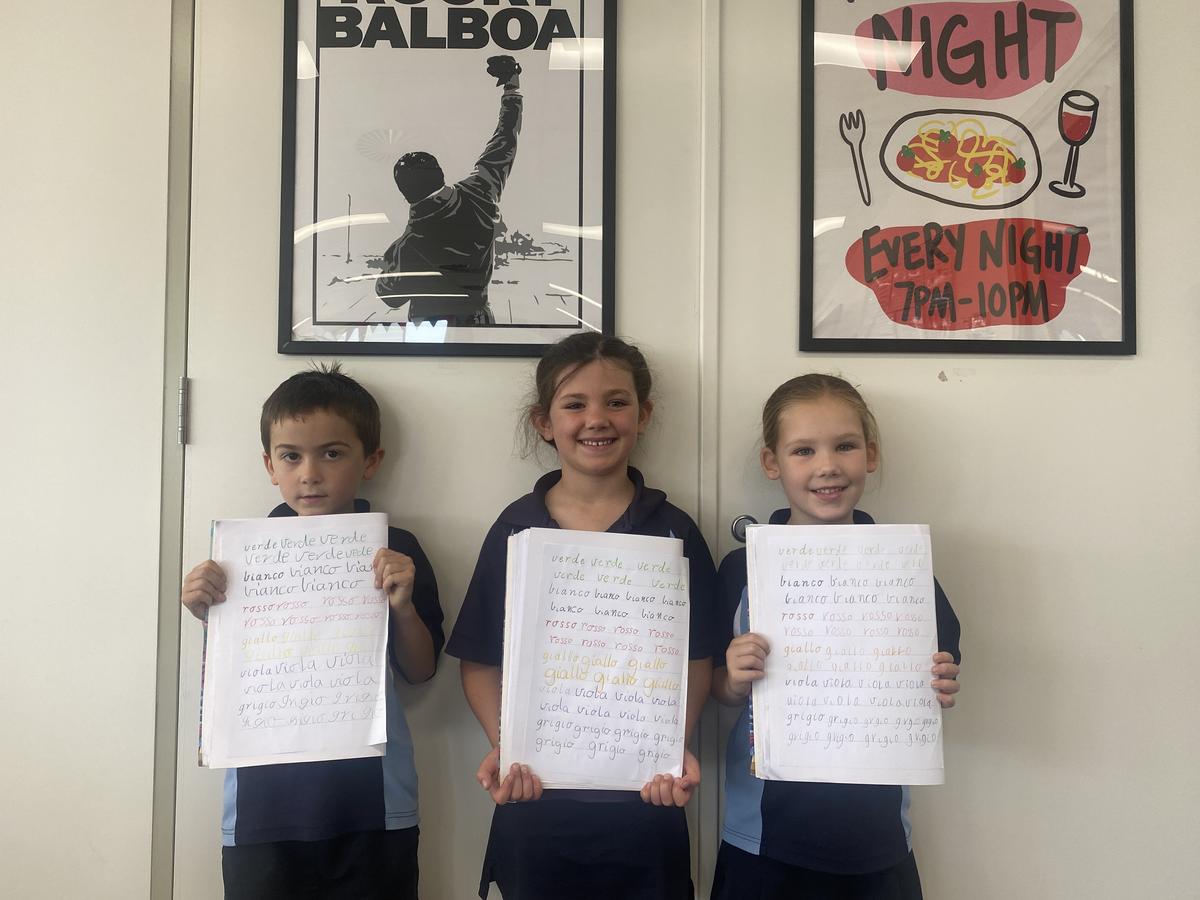 BALBOA
NIGHT
EVERY NIGHT
7PM-10PM
verde verde verde
verde verde vede
bianco bianco bian
bianco bianco
rosso rosso rosso rosso
rosso rosso rosso rosso
giallo
viola viola viola
viola viola viola
grigio
verde verde verde
verde verde verde
bianco bianco bianco bianco
bianco bianco bianco
rosso rosso rosso rosso
rosso rosso rosso rosso
giallo giallo giallo
giallo giallo giallo
viola viola viola viola
viola viola viola viola
grigio grigio grigio grigio
grigio grigio grigio
verde verde verde
verde verde
bianco bianco bianco
bianco bianco bianco
rosso rosso rosso rosso
rosso rosso rosso rosso
giallo giallo giallo
giallo giallo giallo giallo
viola viola viola viola
viola viola viola viola
grigio grigio grigio grigio
grigio grigio grigio grigio